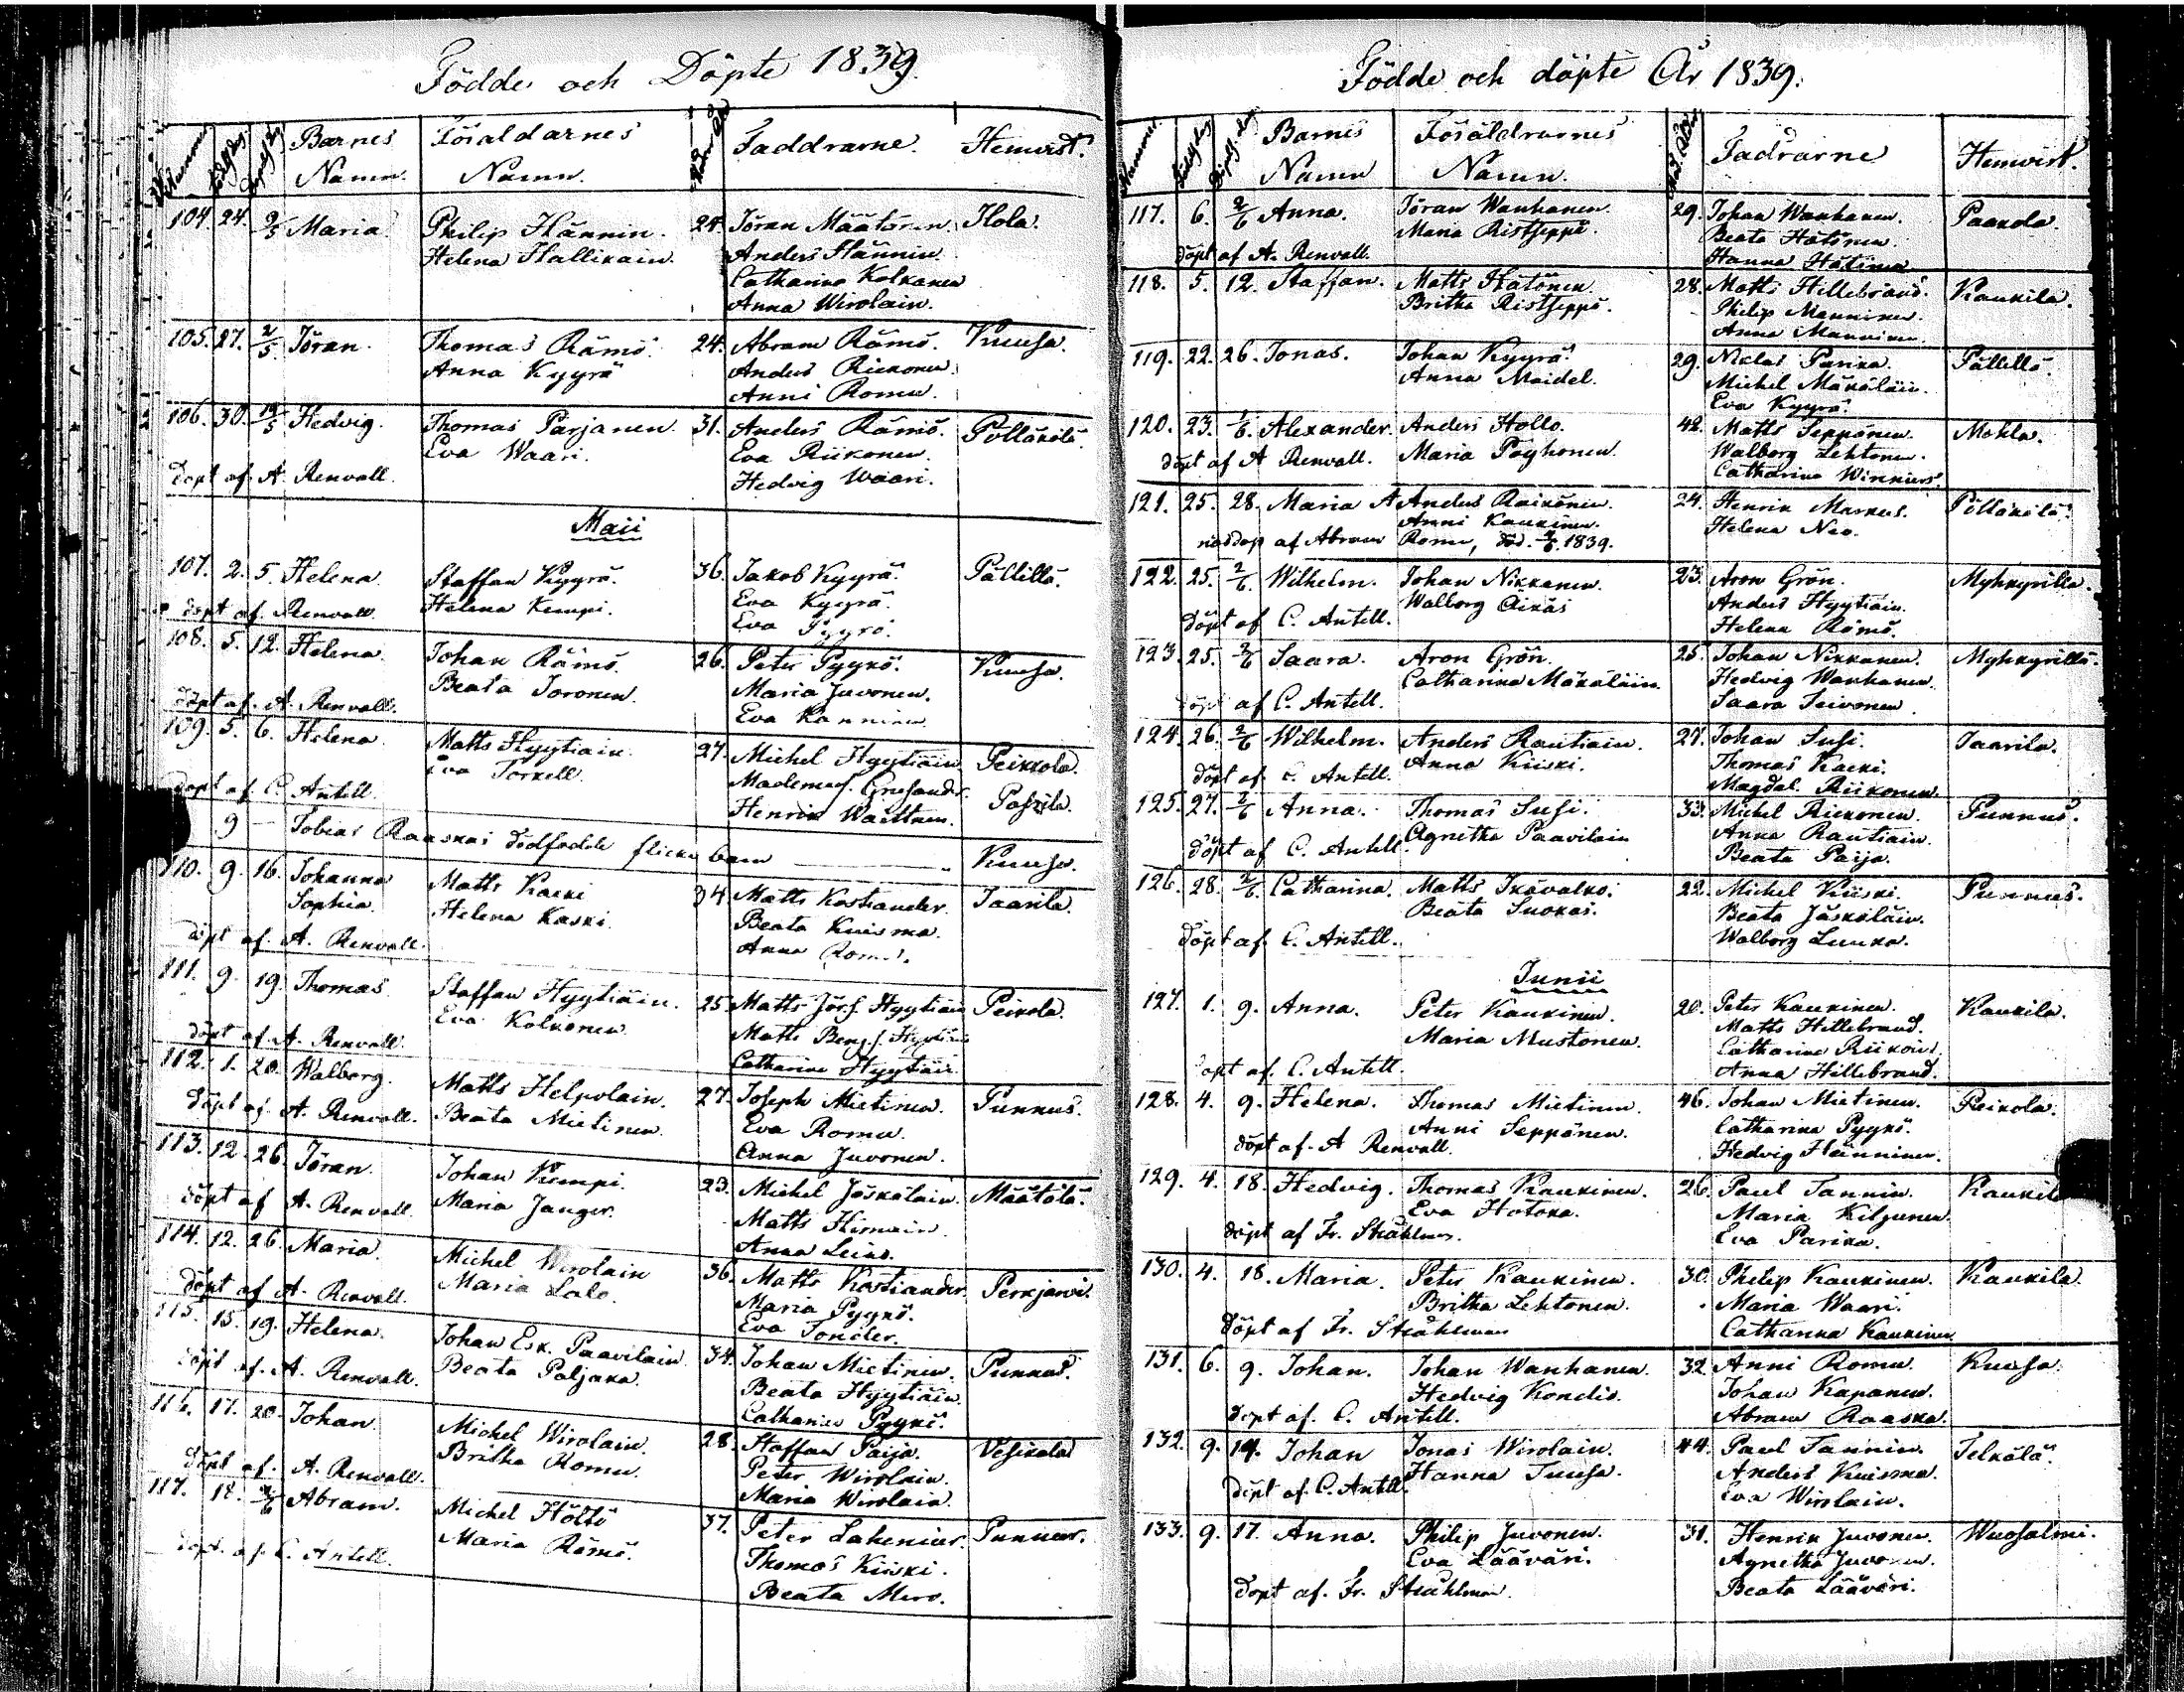 Födde och Döpte 1839.
Nummer Födelsedag Döpelsedag Barnes Namn. Föräldarnes Namn. Faddrarne. Hemvist.
104. 24. 2/5 Maria. Philip Hännin. 24. Jöran Määtänen. Ilola.
Helena Hallikain. Anders Hännin.
Catharina Kolkonen
Anna Wirolain.
105. 27. 2/5. Jöran. Thomas Rämö. 24. Abram Rämö. Kuusa.
Anna Kyyrä Anders Riikonen.
Anni Romu.
106. 30. 19/5 Hedvig. Thomas Parjanen. 31. Anders Rämö. Pölläkälä.
Eva Waari. Eva Riikonen.
döpt af A. Renvall. Hedvig Waari.
Maii
107. 2. 5. Helena. Staffan Kyyrä. 36. Jakob Kyyrä. Pällilä.
döpt af Renvall. Helena Kempi. Eva Kyyrä.
Eva Pyyrö.
108. 5. 12. Helena. Johan Rämö. 26. Peter Pyykö. Kuusa.
Beata Toronen. Maria Juvonen.
döpt af A. Renvall. Eva Kanninen
109. 5. 6. Helena. Matts Hyytiäin. 27. Michel Hyytiäin Peikkola.
Eva Torkell. Mademois. Grusander.
döpt af C. Antell. Henrik
9 — Tobias Raaskas dödfödde flicku barn — Kuusa.
110. 9. 16. Johanna Matts Kaski 34 Matts Kostiander. Jaarila.
Sophia. Helena Kaski. Beata Kuisma.
döpt af A. Renvall. Anna Romu.
111. 9. 19. Thomas Staffan Hyytiäin. 25. Matts Jörs. Hyytiäin Peikola.
Eva Kolkonen. Matts Beng.s. Hyytiäin
döpt af A. Renvall. Catharina Hyytiäi
112. 1. 20. Walborg. Matts Helpolain. 27. Joseph Mietinen. Punnus.
döpt af A. Renvall. Beata Mietinen. Eva Romu.
Anna Juvonen.
113. 12. 26. Jöran. Johan Kempi. 23. Michel Jäskäläin. Määtälä.
döpt af A. Renvall. Maria Janger. Matts Himain.
Anna Leino.
114. 12. 26. Maria. Michel Wirolain 36. Matts Kostiander. Perkjärvi.
döpt af A. Renvall. Maria Lalo. Maria Pyykö.
Eva Tonder.
115. 15. 19. Helena. Johan Esk. Paavilain. 34. Johan Mietinen. Punnus.
döpt af A. Renvall. Beata Paljaka. Beata Hyytiäin.
Catharina Pyykö.
116. 17. 20. Johan. Michel Wirolain. 28. Staffan Paija. Vesikala
döpt af A. Renvall. Britha Romu. Peter Wirolain.
Maria Wirolain.
117. 18. 2/6 Abram. Michel Hölttö 37. Peter Lahenius. Punnus.
döpt af C. Antell. Maria Rämö. Thomas Kiiski.
Beata Muro.
Födde och döpte År 1839.
Nummer Födelsedag Döpelsedag Barnes Namn Föräldrarnes Namn. Fadrarne Hemvist.
117. 6. 2/6 Anna. Jöran Wanhanen. 29. Johan Wanhanen. Paakola.
Maria Ristseppä. Beata Hätönen.
döpt af A. Renvall. Hanna Hätönen
118. 5. 12. Staffan. Matts Hätönen. 28. Matts Hillebrand. Kaukila.
Britha Ristseppä. Philip Manninen.
Anna Manninen.
119. 22. 26. Jonas. Johan Kyyrä. 29. Niclas Parika. Pällilä.
Anna Maidel. Michel Mäkäläin.
Eva Kyyrä.
120. 23. 1/6. Alexander. Anders Hollo. 42. Matts Seppänen. Mohla.
döpt af A Renvall. Maria Pöyhonen. Walborg Lehtonen.
Catharina Winnikers.
121. 25. 28. Maria A Anders Raikönen. 24. Henrik Markus. Pölläkälä.
Anni Kaukinen. Helena Neo.
nöddöp af Abram Romu, död. 2/6. 1839.
122. 25. 2/6 Wilhelm. Johan Nikkanen. 23. Aron Grön. Myhkyrilla.
Walborg Äikäs Anders Hyytiäin.
döpt af C. Antell. Helena Rämö.
123. 25. 2/6 Saara. Aron Grön. 25. Johan Nikkanen. Myhkyrillä.
Catharina Mäkäläin. Hedvig Wanhanen.
döpt af C. Antell. Saara Teivonen.
124. 26. 2/6 Wilhelm. Anders Rautiain. 27. Johan Susi. Jaarila.
Anna Kiiski. Thomas Kaski.
döpt af C. Antell. Magdal. Riikonen.
125. 27. 2/6 Anna. Thomas Susi. 33. Michel Riikonen. Punnus.
döpt af C. Antell. Agnetha Paavilain Anna Rautiain.
Beata Paija.
126. 28. 2/6. Catharina. Matts Ikävalko. 22. Michel Kiiski. Punnus.
Beata Suokas. Beata Jäskäläin.
döpt af C. Antell. Walborg Luuka.
Junii
127. 1. 9. Anna. Peter Kaukinen. 20. Peter Kaukinen. Kaukila.
Maria Mustonen. Matts Hillebrand.
Catharina Riikoin.
döpt af C. Antell. Anna Hillebrand.
128. 4. 9. Helena. Thomas Mietinen. 46. Johan Mietinen. Peikola.
Anni Seppänen. Catharina Pyykö.
döpt af A Renvall. Hedvig Heinninen.
129. 4. 18. Hedvig. Thomas Kaukinen. 26. Paul Tannin. Kaukila
Eva Hotoka. Maria Kiljunen.
döpt af Fr. Stråhlman. Eva Parika.
130. 4. 18. Maria. Peter Kaukinen. 30. Philip Kaukinen. Kaukila.
Britha Lehtonen. Maria Waari.
döpt af Fr. Stråhlman Catharina Kaukinen
131. 6. 9. Johan. Johan Wanhanen. 32. Anni Romu. Kuusa.
Hedvig Kondis. Johan Kapanen.
döpt af C. Antell. Abram Raaska.
132. 9. 14. Johan Jonas Wirolain. 44. Paul Tannin. Telkälä.
döpt af C. Antell. Hanna Tuusa. Anders Kuisma.
Eva Wirolain.
133. 9. 17. Anna. Philip Juvonen. 31. Henrik Juvonen. Wuosalmi.
Eva Lääväri. Agnetha Juvonen.
döpt af Fr. Stråhlman. Beata Lääväri.